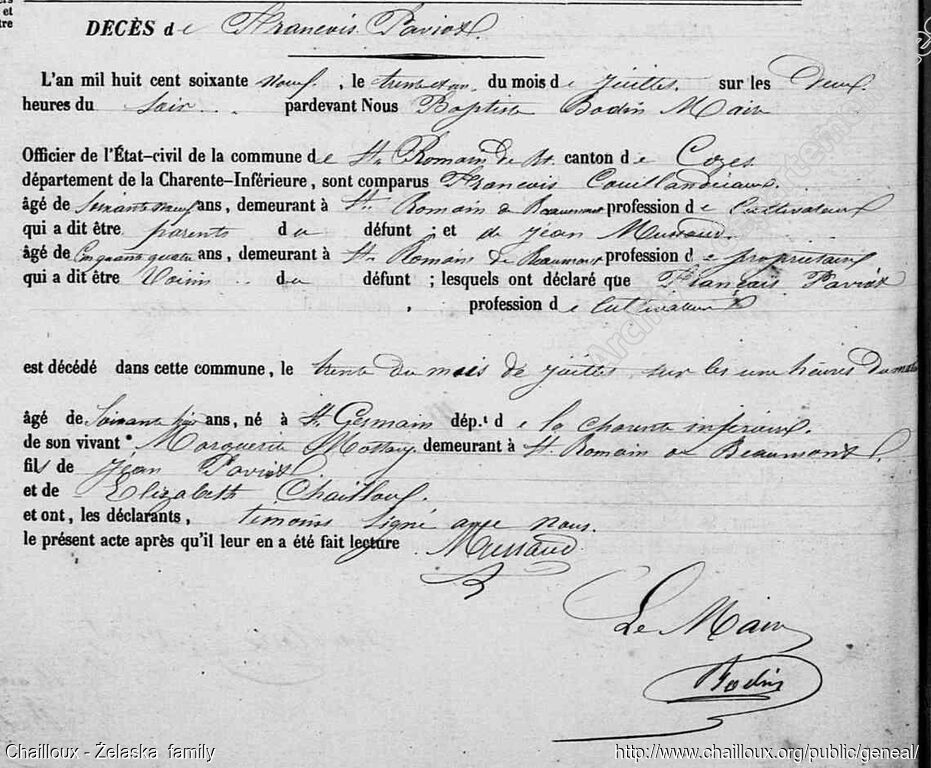 et
tre
DÉCÈS de Francois Paviot.
L'an mil huit cent soixante neuf, le trente un du mois de juillet sur les Deux
heures du Soir pardevant Nous Baptiste Bodin Maire
Officier de l'État-civil de la commune de St. Romain de Bt. canton de Cozes
département de la Charente-Inférieure, sont comparus Francois
âgé de Soixante neuf ans, demeurant à St. Romain de Beaumont profession de Cultivateur
qui a dit être parents du défunt; et de Jéan Mussaud.
âgé de Cinquante quatre ans, demeurant à St. Romain de Beaumont profession de propriétaire
qui a dit être Voisin du défunt; lesquels ont déclaré que Francois Paviot
, profession de Cultivateur
est décédé dans cette commune, le trente du mois de juillet sur les une heures Du matin
âgé de Soixante ans, né à St. Germain dép.t de la charente inferieure.
de son vivant Marguerite demeurant à St. Romain de Beaumont.
fils de Jéan Paviot
et de Elizabeth Chailloux.
et ont, les déclarants, témoins signé avec nous.
le présent acte après qu'il leur en a été fait lecture Mussaud
Le Maire
Bodin
Chailloux - Żelaska family
http://www.chailloux.org/public/geneal/